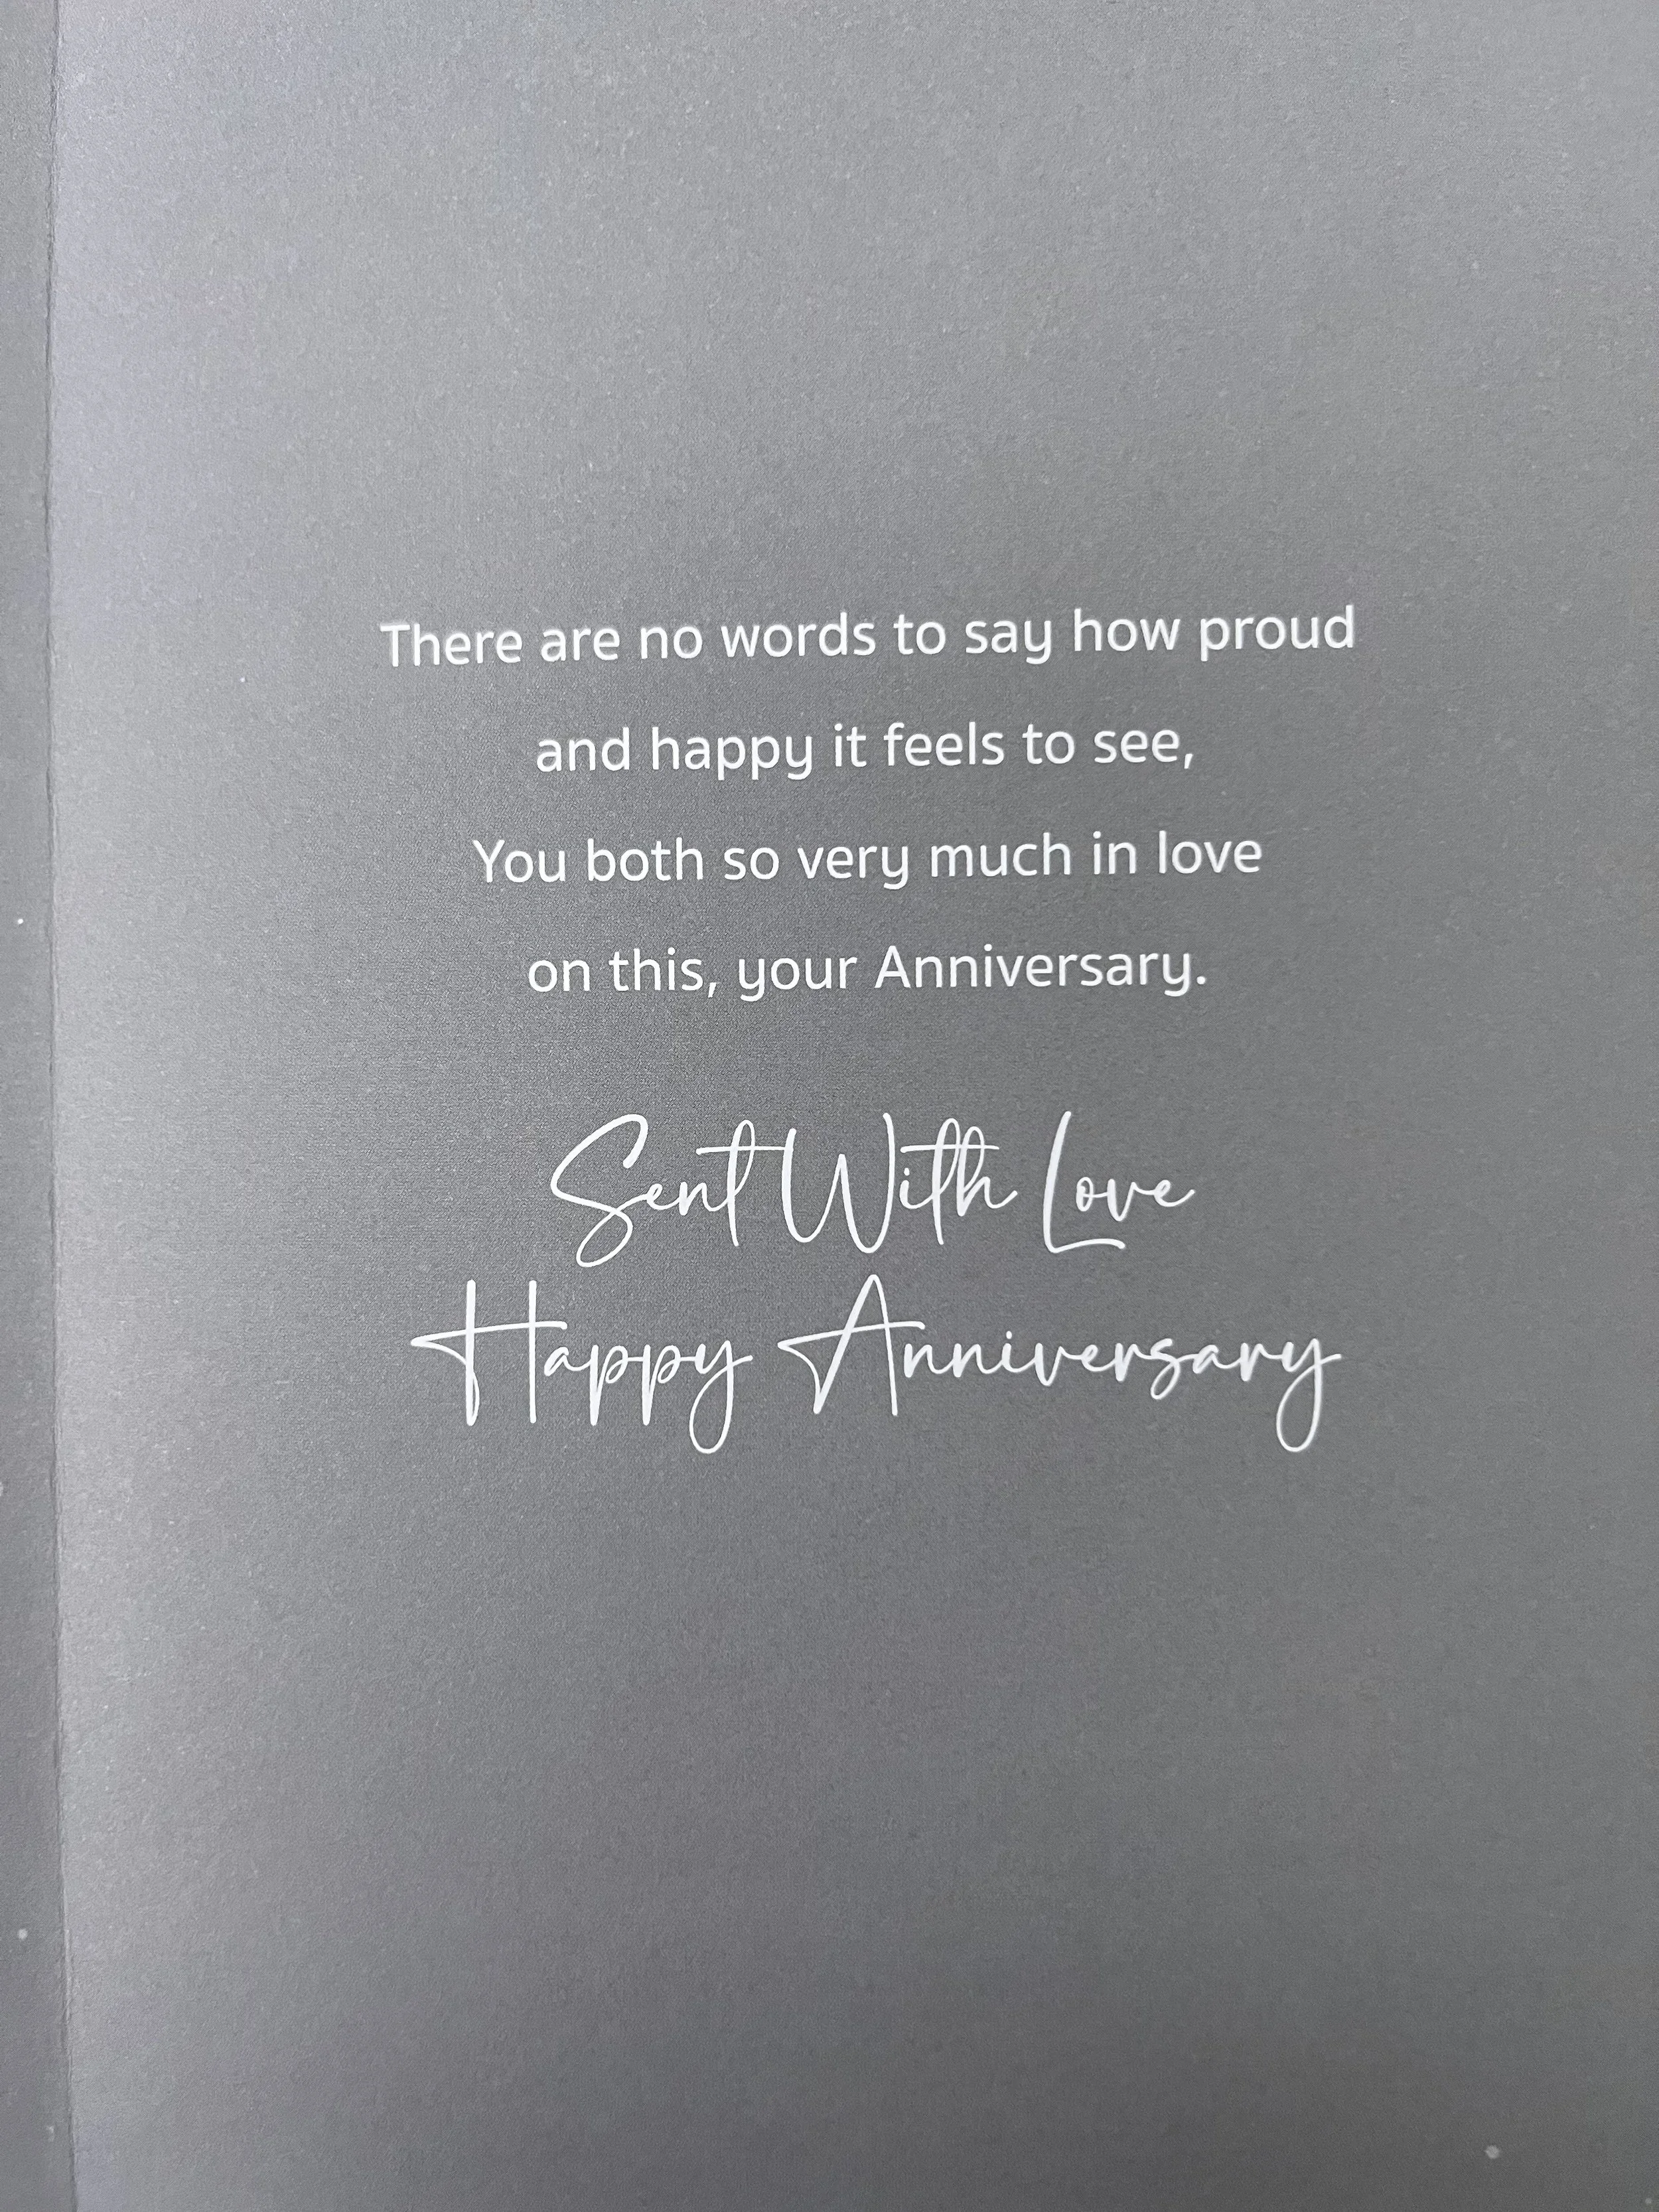 There are no words to say how proud
and happy it feels to see,
You both so very much in love
on this, your Anniversary.
Sent With Love
Happy Anniversary